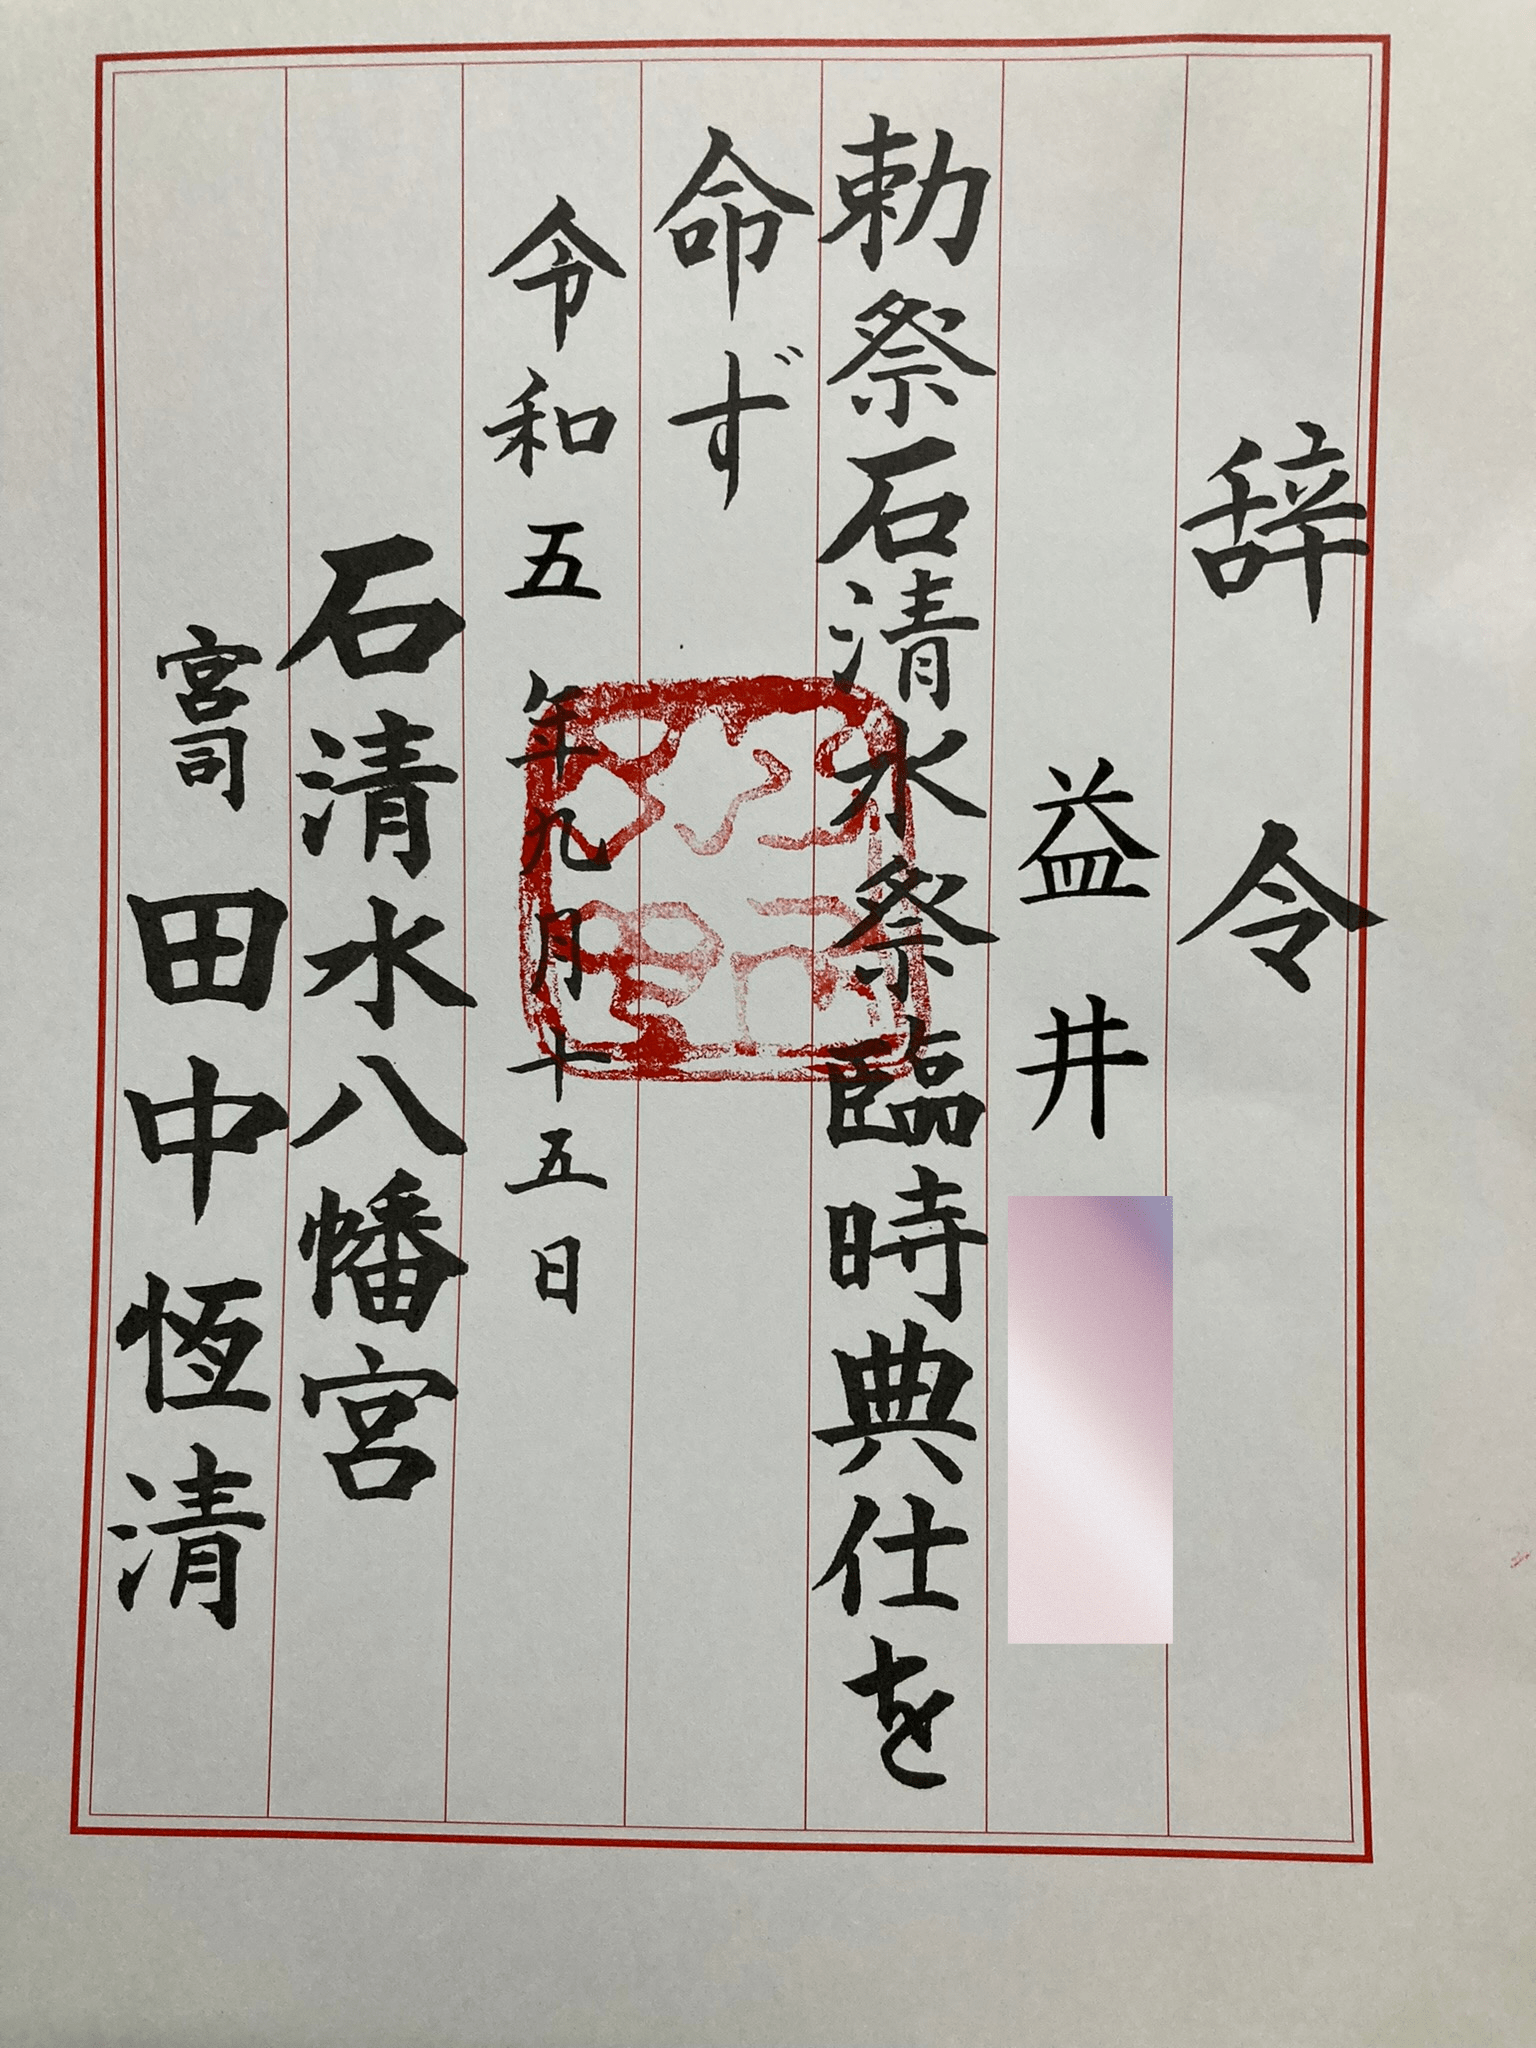 辞令
益井
勅祭石清水祭臨時典仕を
命ず
令和五年九月十五日
石清水八幡宮
宮司 田中恆清